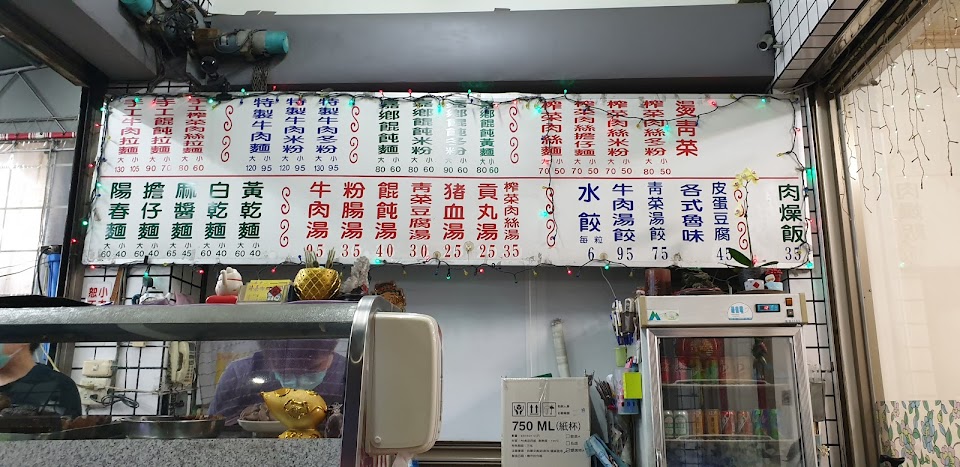 湯青菜
榨菜肉絲冬粉 大 小 80 50
榨菜肉絲米粉 大 小 70 50
榨菜肉絲擔仔麵 大 小 70 50
榨菜肉絲麵 大 小 70 50
鄉餛飩黃麵 大 小 80 60
鄉餛飩冬粉 大 小 80 60
鄉餛飩米粉 大 小 80 60
鄉餛飩麵 大 小 80 60
特製牛肉冬粉 大 小 120 95
特製牛肉米粉 大 小 120 95
特製牛肉麵 大 小 120 95
手工榨菜肉絲拉麵 大 小 80 60
手工餛飩拉麵 大 小 90 70
手工牛肉拉麵 大 小 130 105
肉燥飯 35
皮蛋豆腐 45
各式魯味
青菜湯餃 75
牛肉湯餃 95
水餃 每粒 6
榨菜肉絲湯 35
貢丸湯 25
豬血湯 25
青菜豆腐湯 30
餛飩湯 40
粉腸湯 35
牛肉湯 95
黃乾麵 大 小 60 40
白乾麵 大 小 60 40
麻醬麵 大 小 65 45
擔仔麵 大 小 60 40
陽春麵 大 小 60 40
小 恕
750 ML(紙杯)